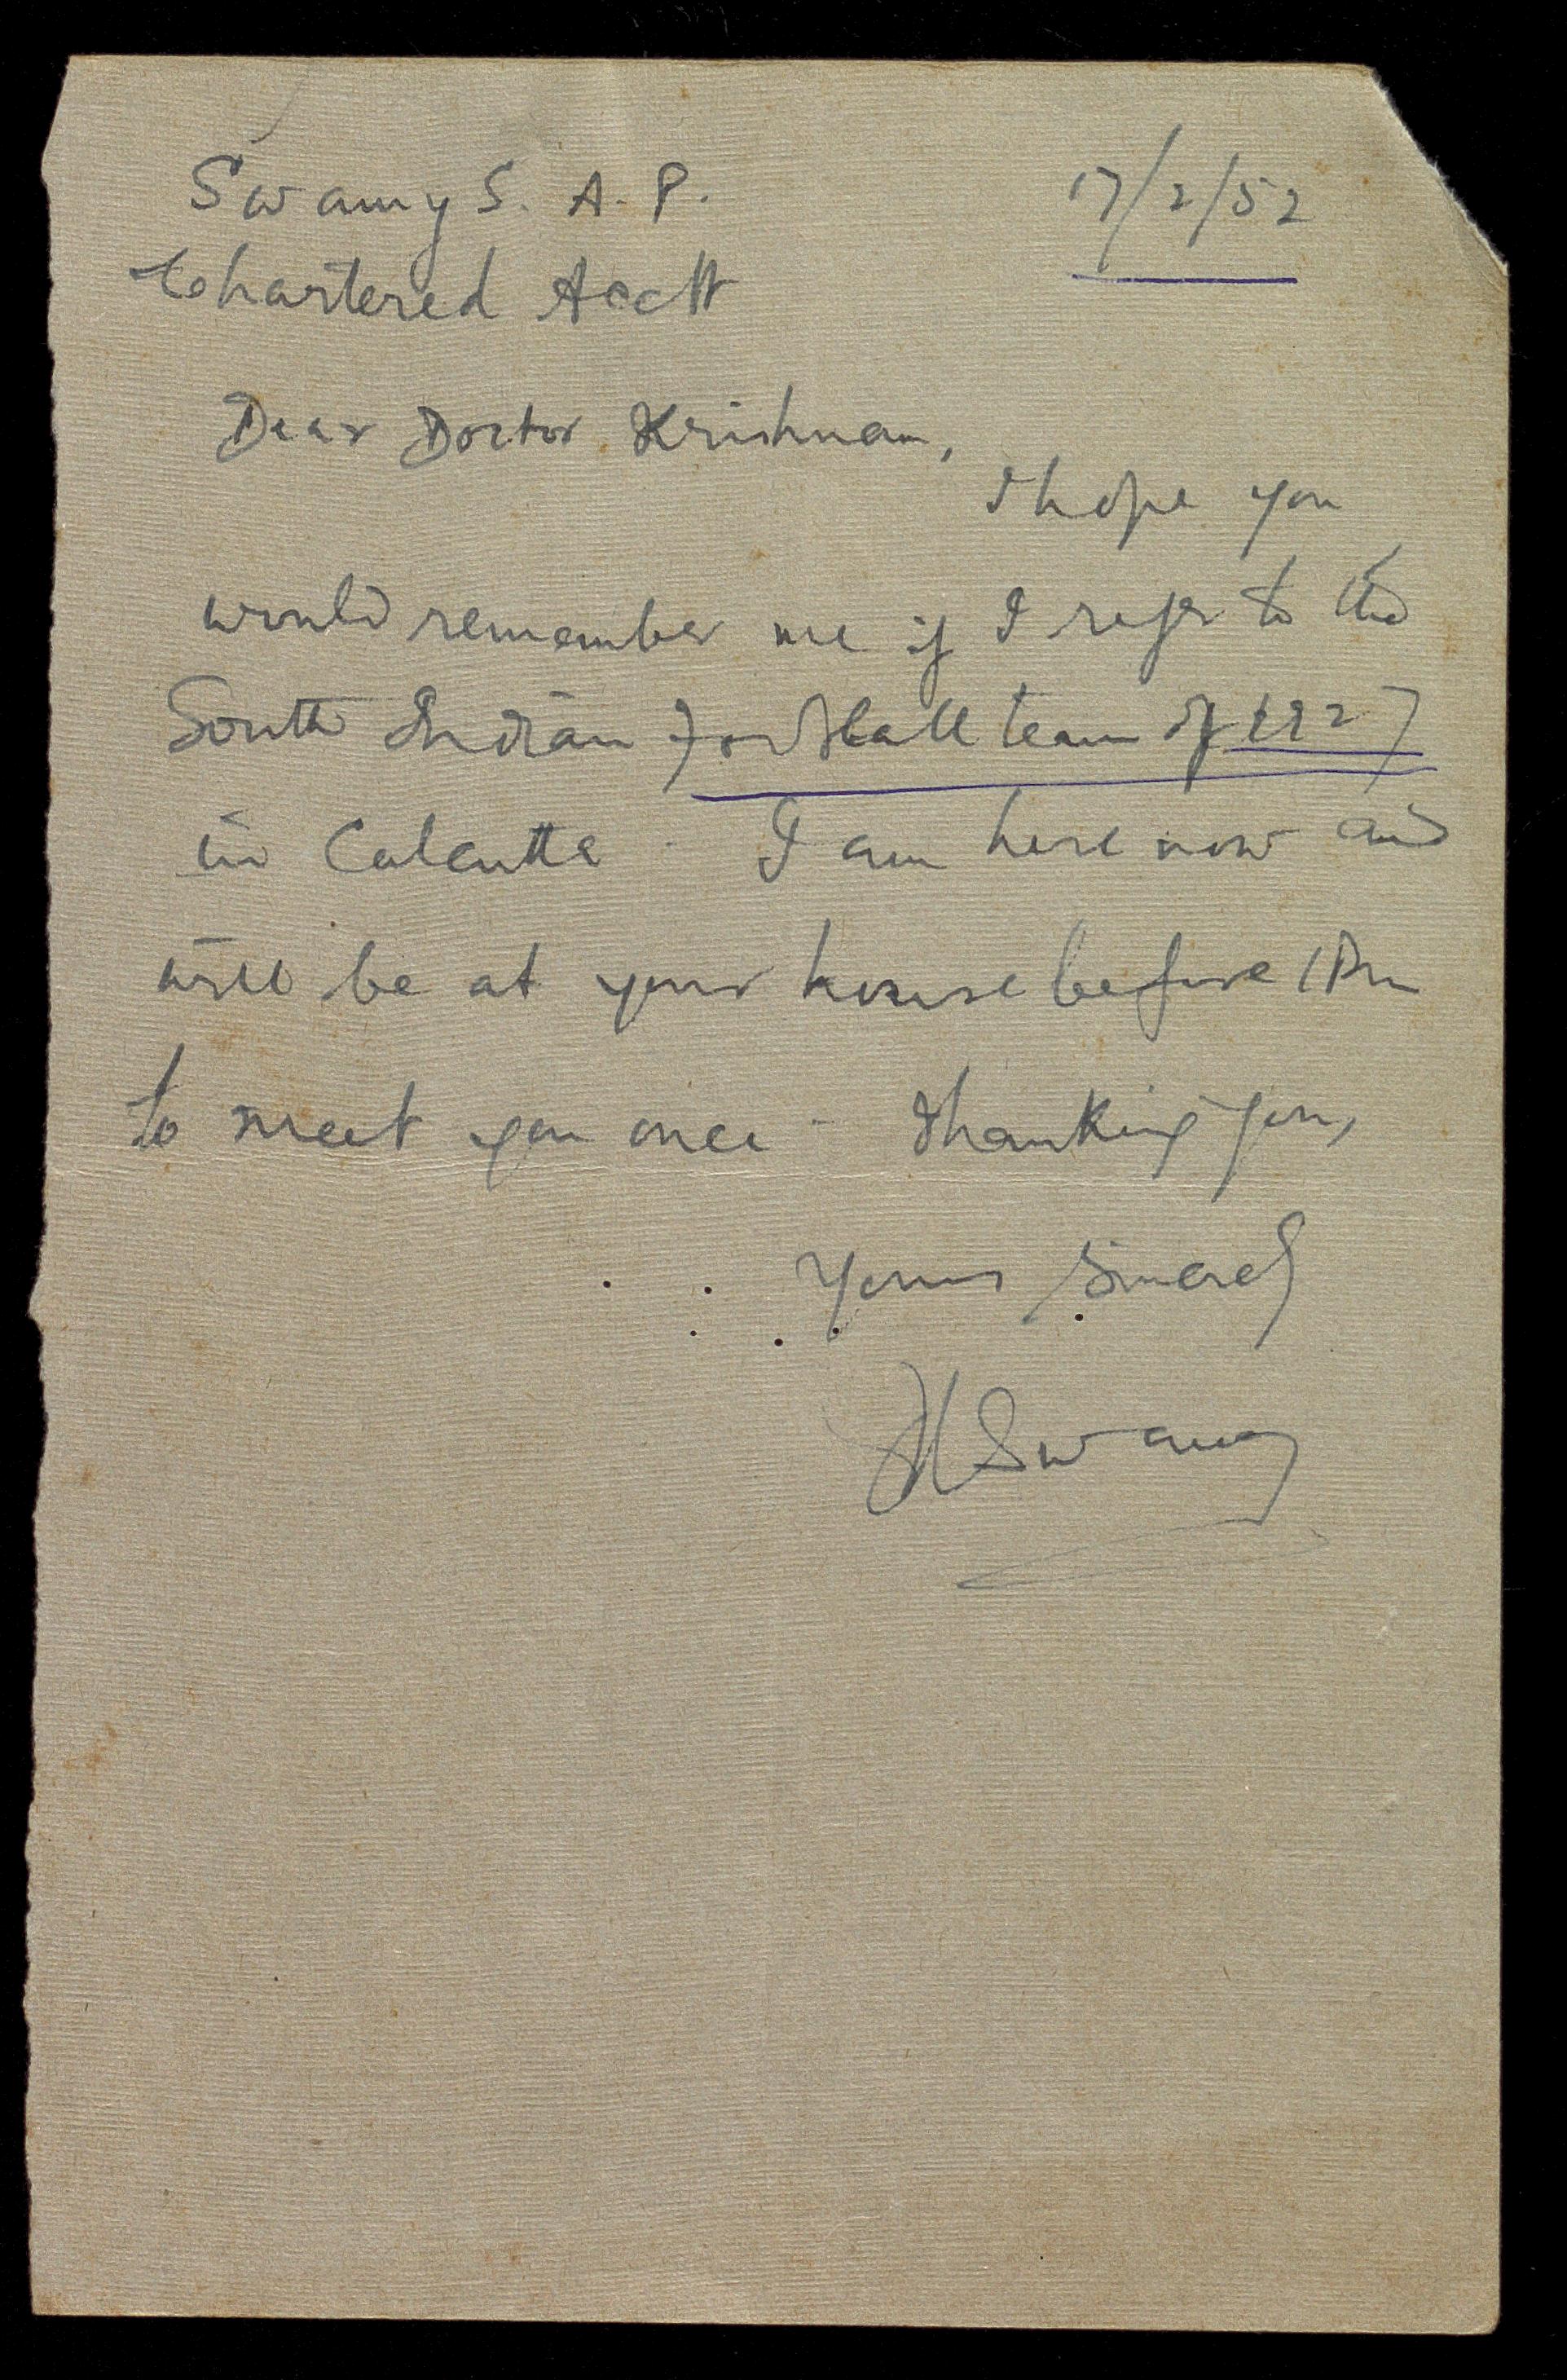 Swamy S. A. P. 17/2/52
Chartered Acctt
Dear Doctor Krishnan,
I hope you
would remember me if I refer to the
South Indian Football team of 1927
in Calcutta. I am here now and
will be at your house before 1 PM
to meet you once - Thanking you,
Yours Sincerely
Swamy